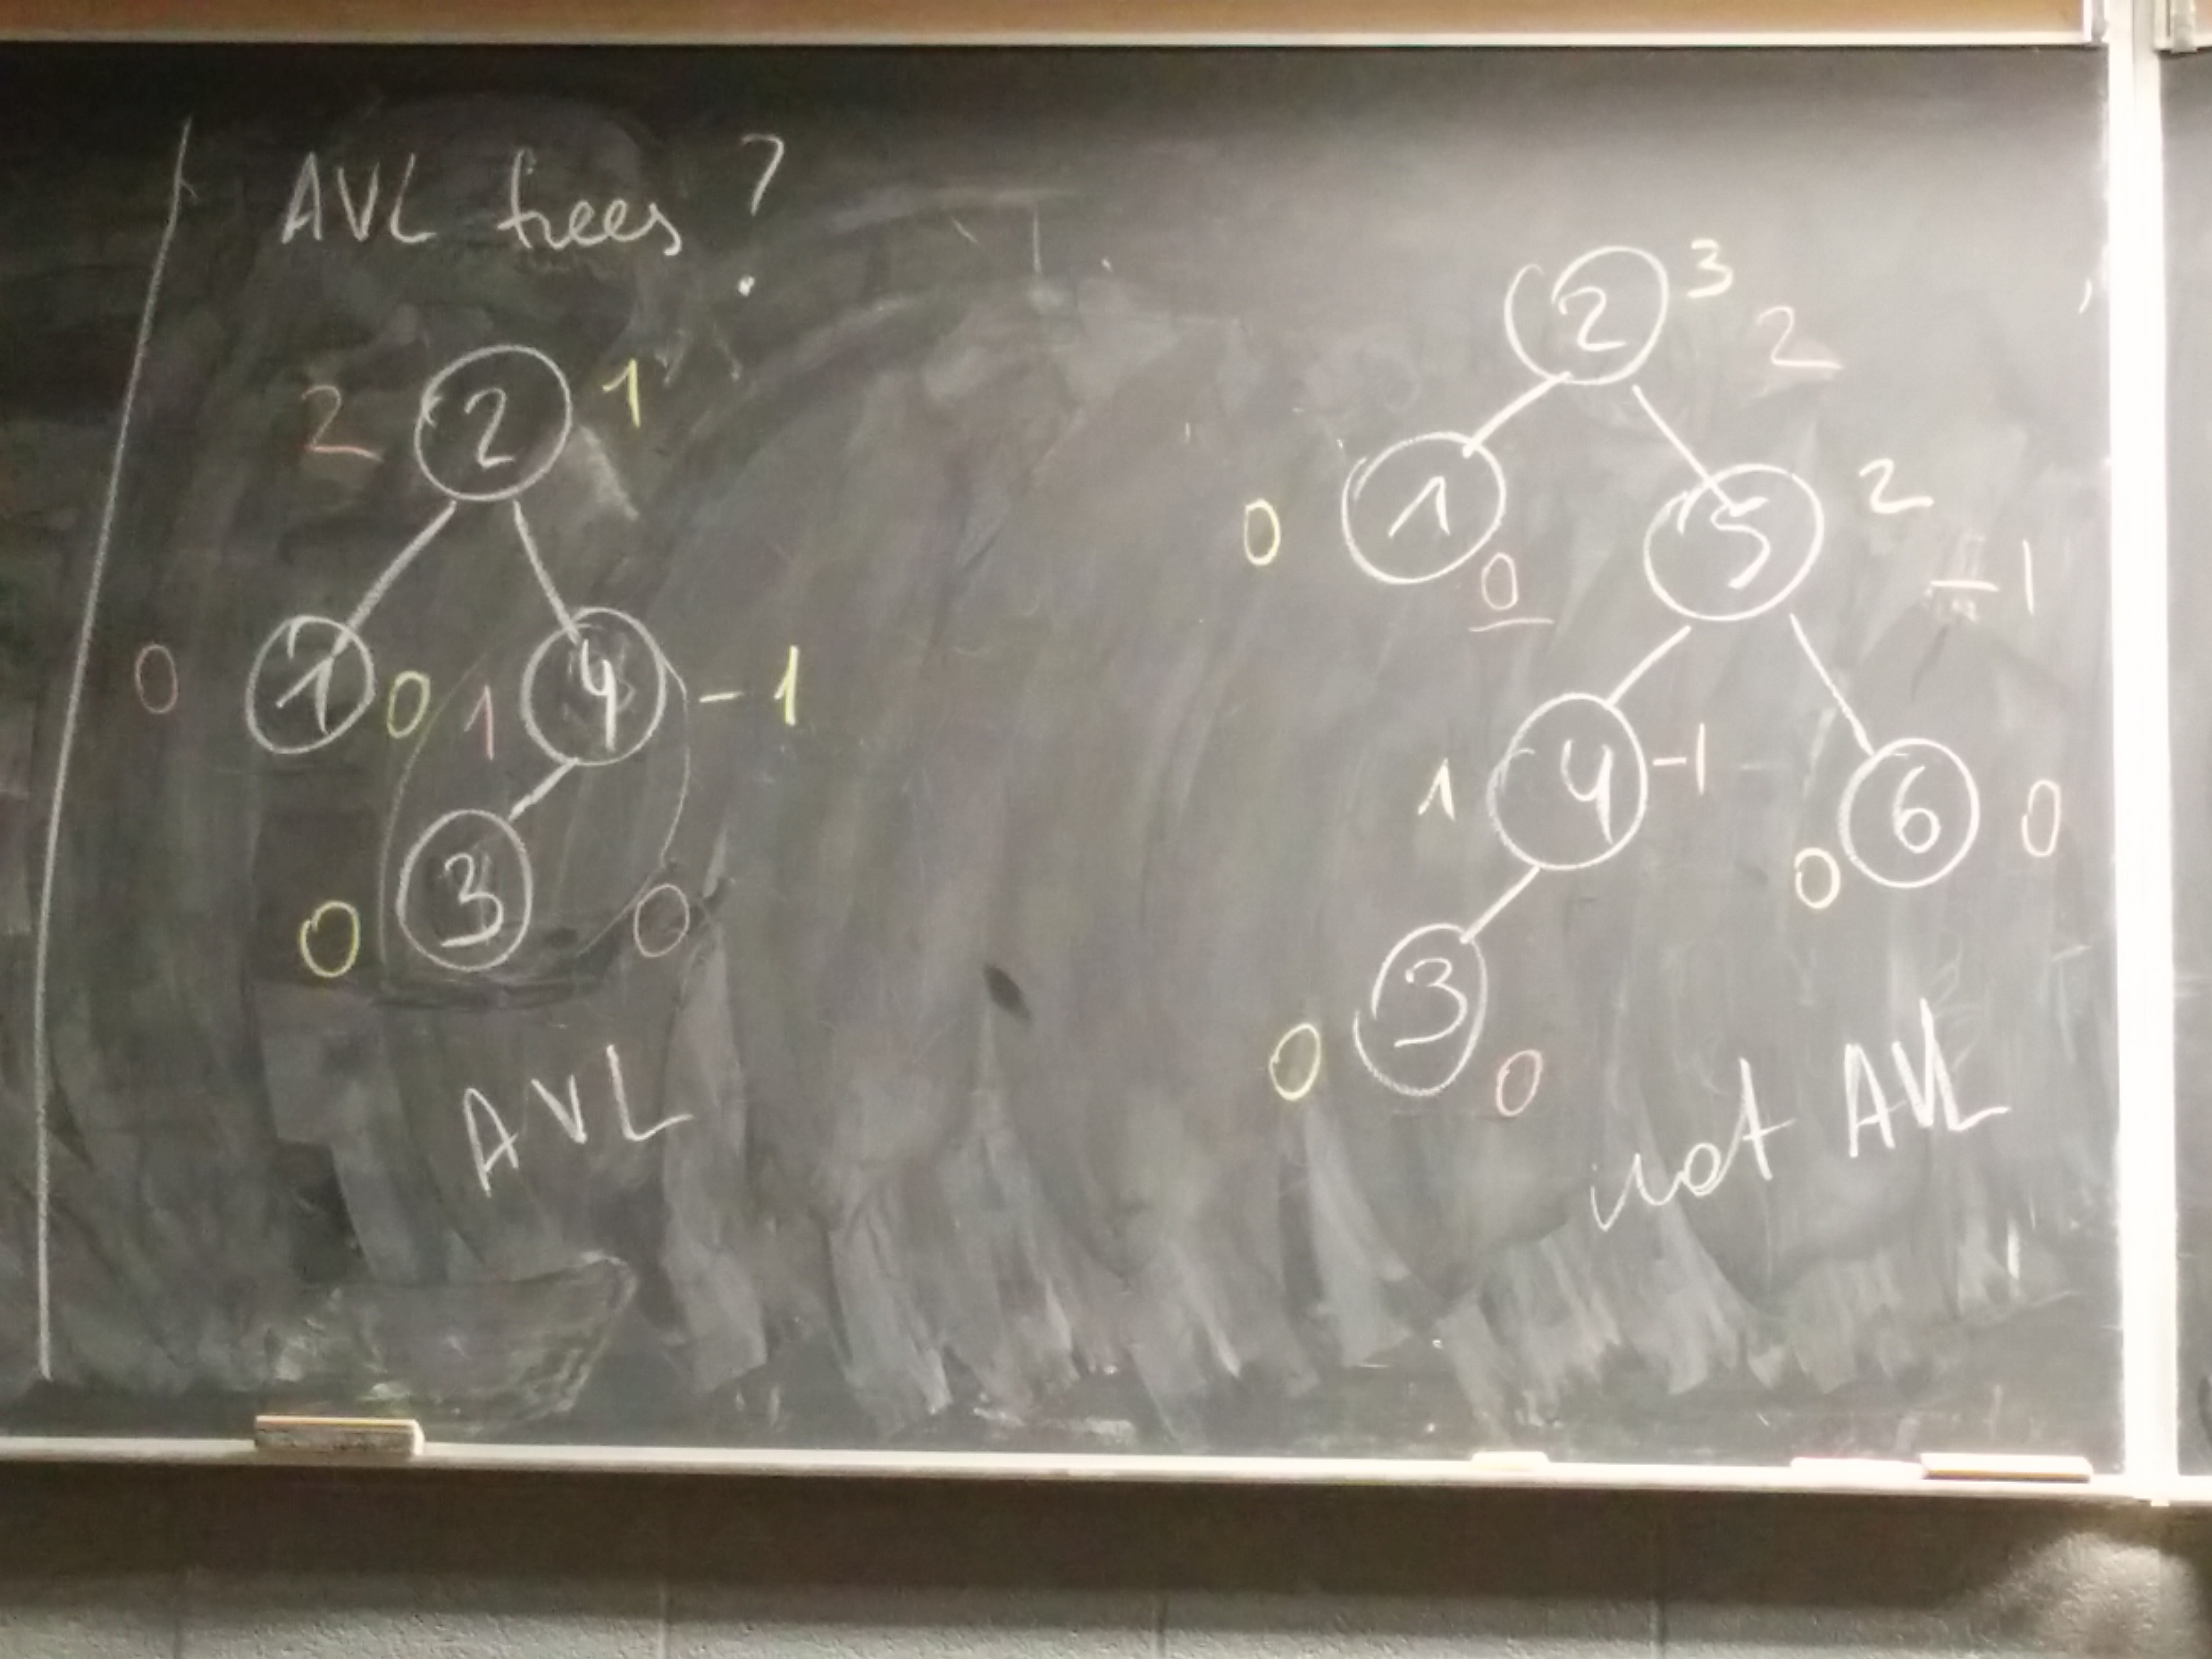 AVL trees?
2 2 1
0 1 0 1 4 -1
0 3 0
AVL
2 3
2
0 1 0 5 2
-1
1 4 -1 0 6 0
0 3 0
not AVL